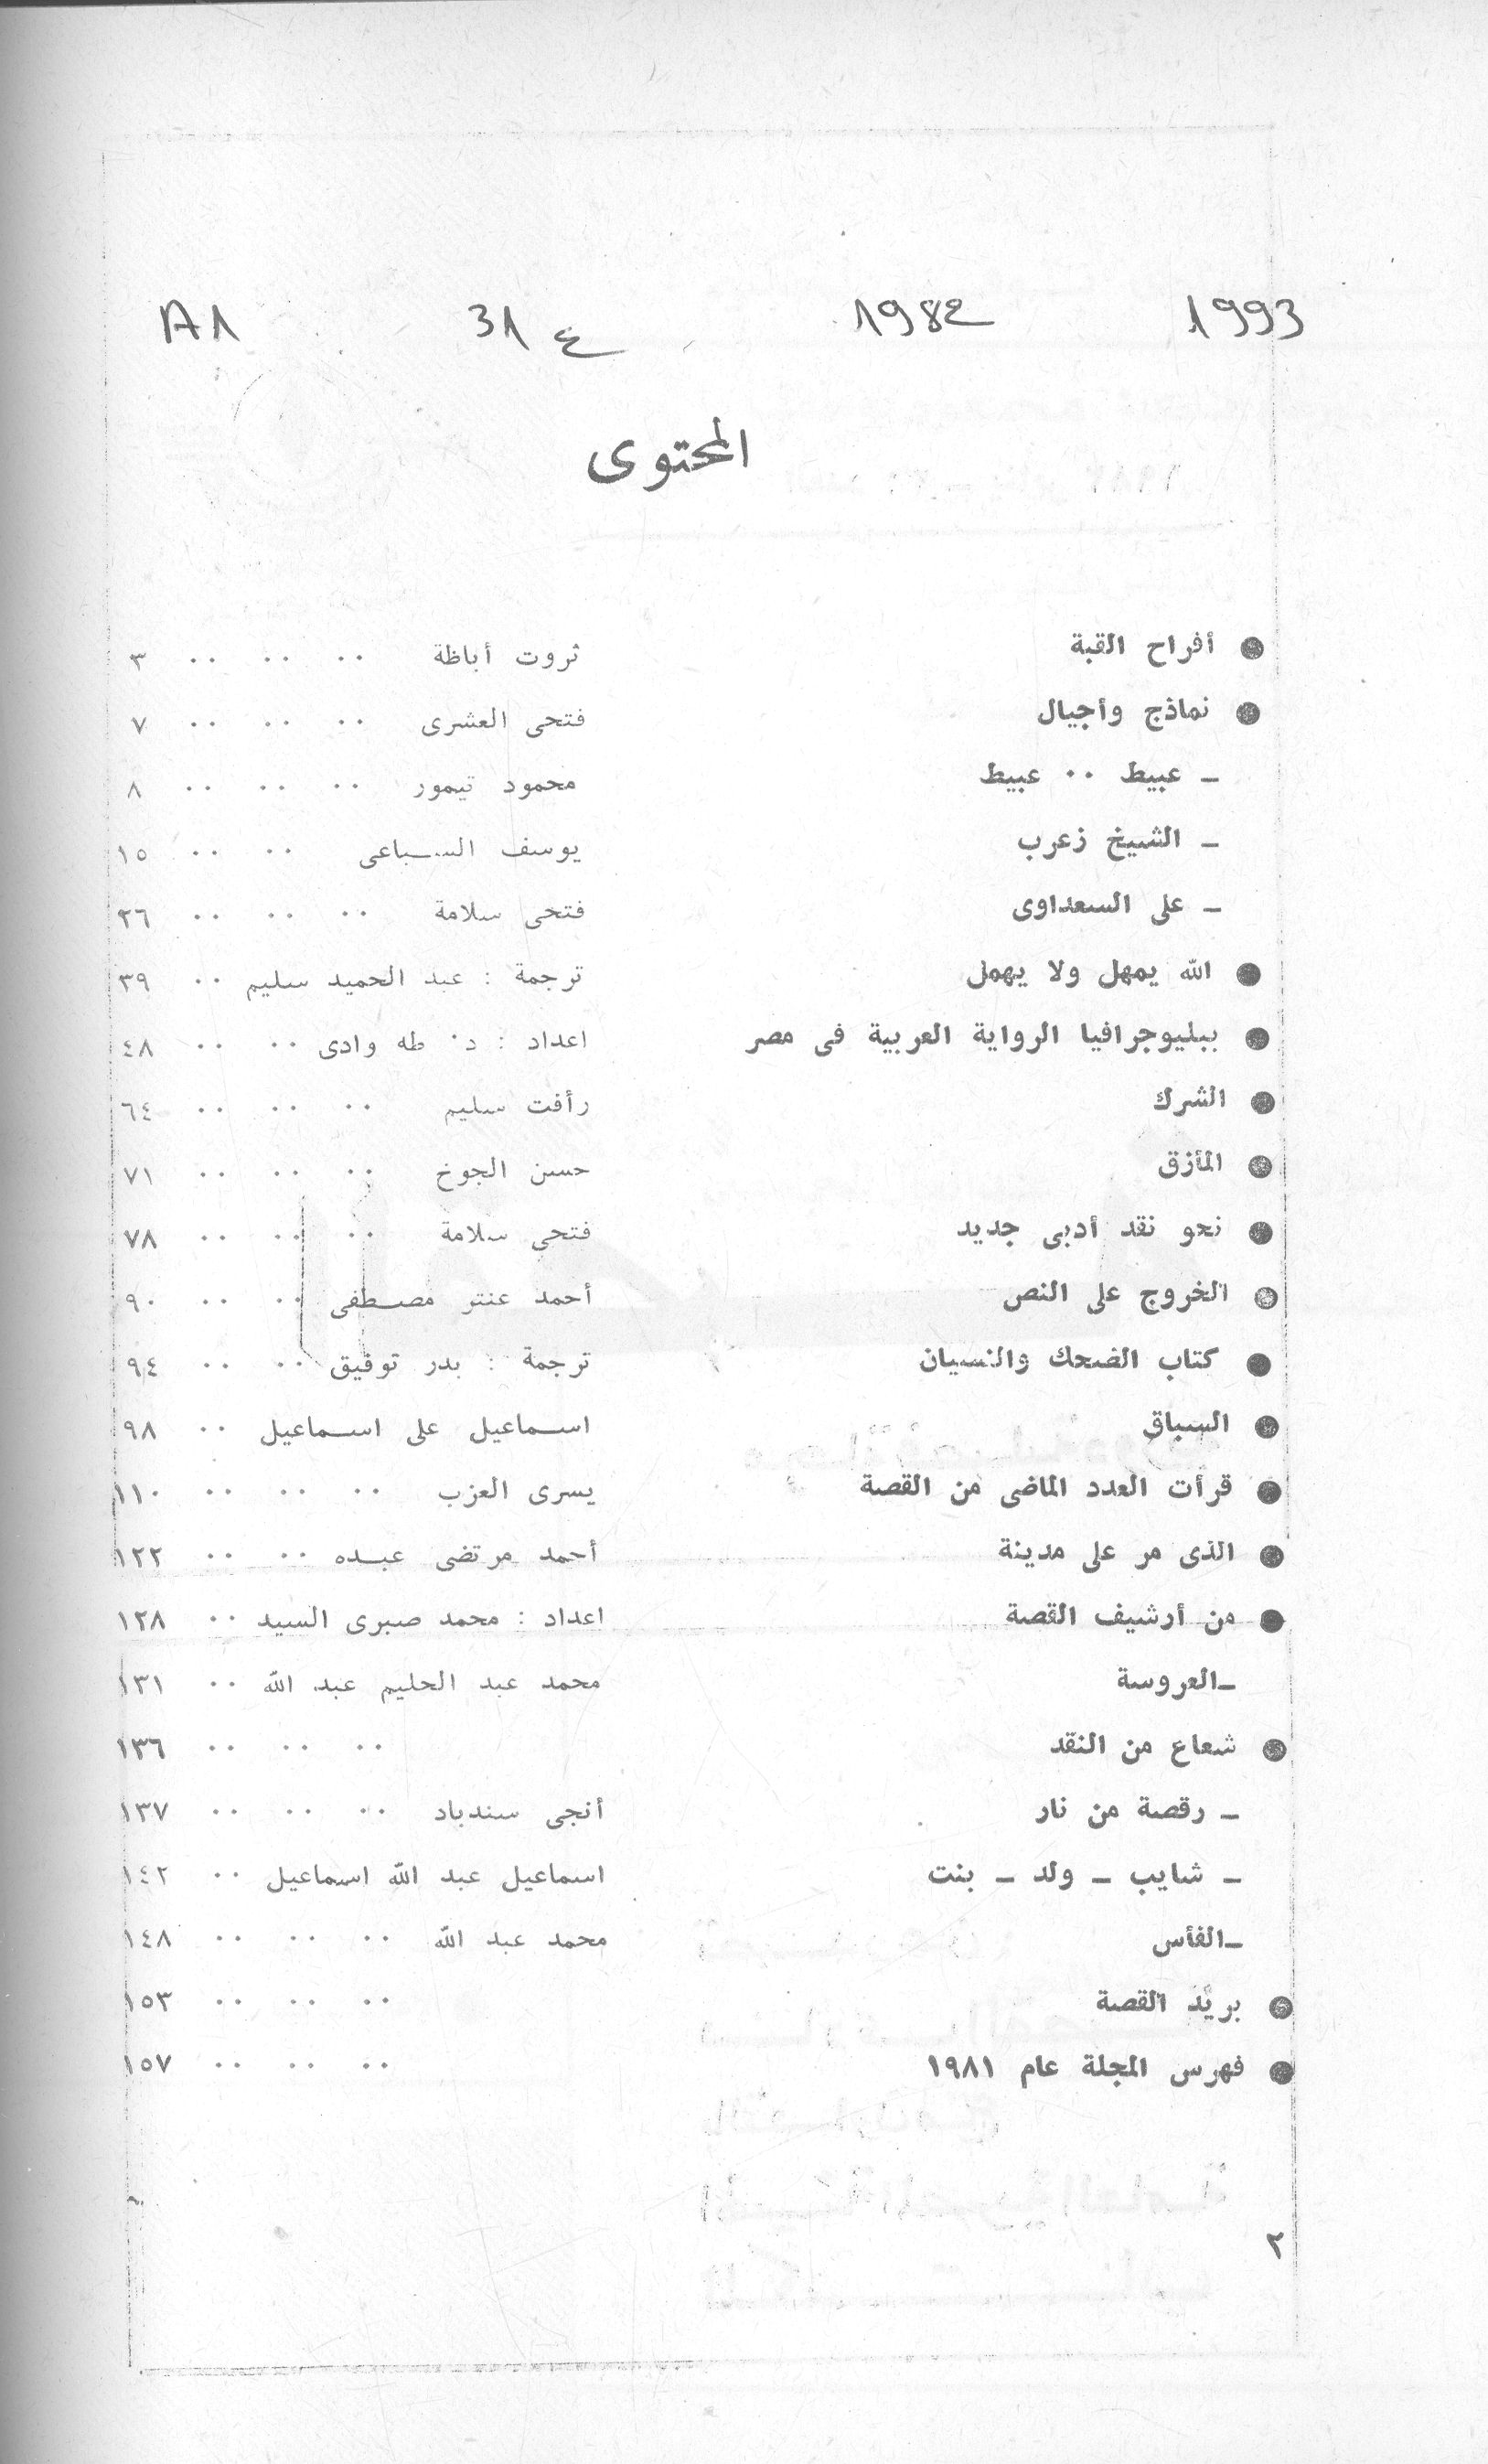 1993 1982 31 ع A1
المحتوى
● أفراح القبة ثروت أباظة ٠٠ ٠٠ ٠٠ ٣
● نماذج وأجيال فتحى العشرى ٠٠ ٠٠ ٠٠ ٧
ـ عبيط ٠٠ عبيط محمود تيمور ٠٠ ٠٠ ٠٠ ٨
ـ الشيخ زعرب يوسف السباعى ٠٠ ٠٠ ١٥
ـ على السعداوى فتحى سلامة ٠٠ ٠٠ ٠٠ ٢٦
● الله يمهل ولا يهمل ترجمة : عبد الحميد سليم ٠٠ ٣٩
● ببليوجرافيا الرواية العربية فى مصر اعداد : د٠ طه وادى ٠٠ ٠٠ ٤٨
● الشرك رأفت سليم ٠٠ ٠٠ ٠٠ ٦٤
● المأزق حسن الجوخ ٠٠ ٠٠ ٠٠ ٧١
● نحو نقد أدبى جديد فتحى سلامة ٠٠ ٠٠ ٠٠ ٧٨
● الخروج على النص أحمد عنتر مصطفى ٠٠ ٠٠ ٩٠
● كتاب الضحك والنسيان ترجمة : بدر توفيق ٠٠ ٠٠ ٩٤
● السباق اسماعيل على اسماعيل ٠٠ ٩٨
● قرأت العدد الماضى من القصة يسرى العزب ٠٠ ٠٠ ٠٠ ١١٠
● الذى مر على مدينة أحمد مرتضى عبده ٠٠ ٠٠ ١٢٢
● من أرشيف القصة اعداد : محمد صبرى السيد ٠٠ ١٢٨
ـالعروسة محمد عبد الحليم عبد الله ٠٠ ١٣١
● شعاع من النقد ٠٠ ٠٠ ٠٠ ١٣٦
ـ رقصة من نار أنجى سندباد ٠٠ ٠٠ ٠٠ ١٣٧
ـ شايب ـ ولد ـ بنت اسماعيل عبد الله اسماعيل ٠٠ ١٤٢
ـالفأس محمد عبد الله ٠٠ ٠٠ ٠٠ ١٤٨
● بريد القصة ٠٠ ٠٠ ٠٠ ١٥٣
● فهرس المجلة عام ١٩٨١ ٠٠ ٠٠ ٠٠ ١٥٧
٢